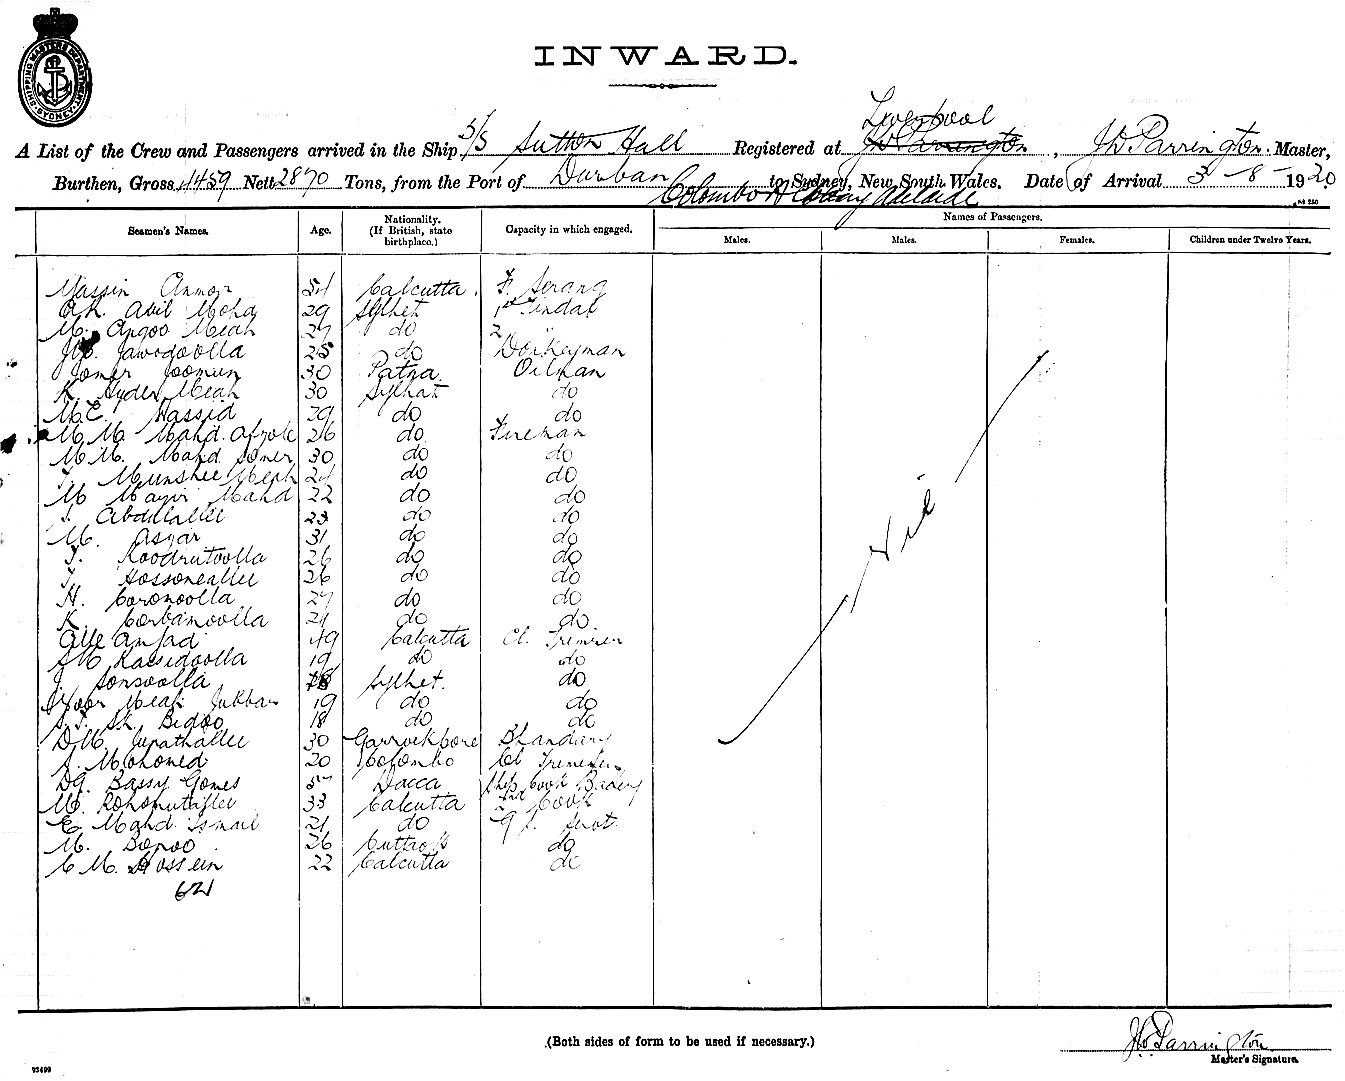 SHIPPING MASTERS DEPARTMENT SYDNEY
INWARD.
Liverpool
A List of the Crew and Passengers arrived in the Ship S/S Sutton Hall Registered at J W Parrington, J W Parrington Master,
Burthen, Gross 4459 Nett 2870 Tons, from the Port of Durban to Sydney, New South Wales. Date of Arrival 3-8-1920
Colombo Albany Adelaide
Seamen's Names. Age. Nationality. (If British, state birthplace.) Capacity in which engaged. Names of Passengers.
Males. Males. Females. Children under Twelve Years.
54 Calcutta. F. Serang
Abil 29 Sylhet 1st Tindal
M. Meah 27 do 2
Jawodoolla do Donkeyman
30 Patna Oilman
K. Hyder Meah 30 Sylhat do
M.E. Wassid 29 do do
M. M. Mahd. 26 do Fireman
M. M. Mahd. 30 do do
Munshee Meah 24 do do
M Mahd 22 do do
Abdulallee 23 do do
M. Asgar 31 do do
Koodrutoolla 26 do do
Hossoneallee 26 do do
H. Coronoolla 27 do do
K. Corbanoolla 21 do do.
Alle Amjad 49 Calcutta Cl. Trimmer
Kassidoolla 19 do do
Sonsoolla Sylhet. do
Noor Meah Jubbar 19 do do
Sk. Bedoo 18 do do
D.M. Jupathallee 30 Garrockpore Bhandary
S. Mohomed 20 Colombo Cl Trimmer
DG. Bassy Gomes 57 Dacca Ship Cook
M. 33 Calcutta 2nd Cook
E. Mahd. Ismail 21 do
M. 26 Cuttack do
C M. Hossein 22 Calcutta do
Nil
(Both sides of form to be used if necessary.)
J W Parrington
Master's Signature.